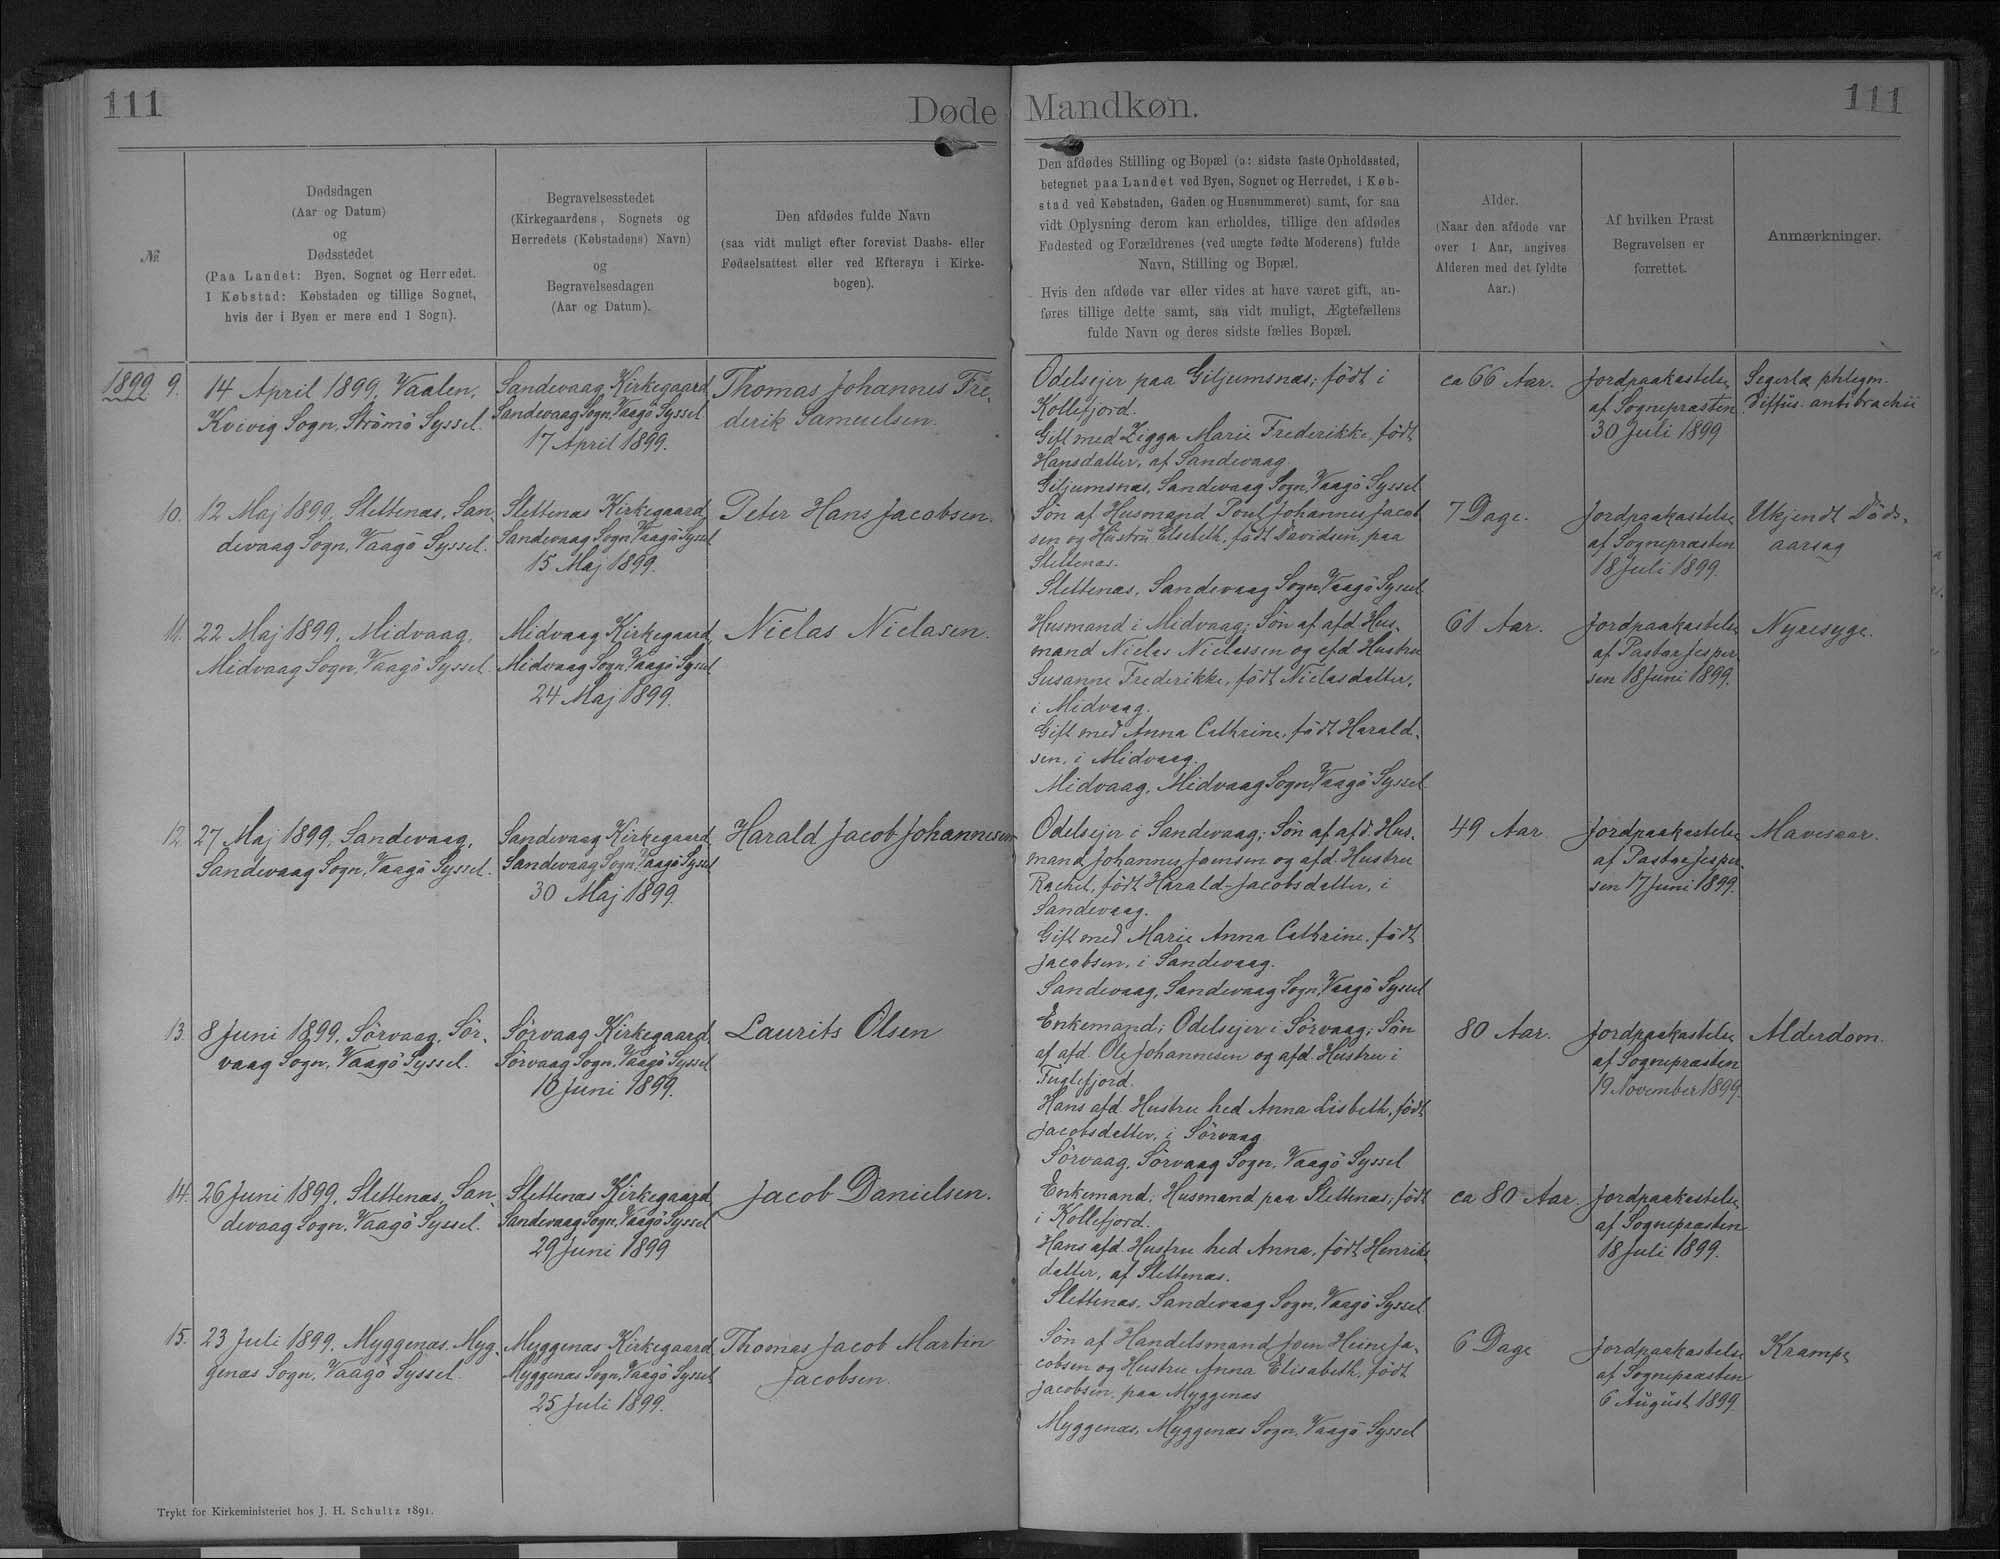 111
Døde
Mandkøn.
111
№
Dødsdagen
(Aar og Datum)
og
Dødsstedet
(Paa Landet: Byen, Sognet og Herredet.
I Købstad: Købstaden og tillige Sognet,
hvis der i Byen er mere end 1 Sogn).
Begravelsesstedet
(Kirkegaardens, Sognets og
Herredets (Købstadens) Navn)
og
Begravelsesdagen
(Aar og Datum).
Den afdødes fulde Navn
(saa vidt muligt efter forevist Daabs- eller
Fødselsattest eller ved Eftersyn i Kirke-
bogen).
Den afdødes Stilling og Bopæl (ɔ: sidste faste Opholdssted,
betegnet paa Landet ved Byen, Sognet og Herredet, i Køb-
stad ved Købstaden, Gaden og Husnummeret) samt, for saa
vidt Oplysning derom kan erholdes, tillige den afdødes
Fødested og Forældrenes (ved uægte fødte Moderens) fulde
Navn, Stilling og Bopæl.
Hvis den afdøde var eller vides at have været gift, an-
føres tillige dette samt, saa vidt muligt, Ægtefællens
fulde Navn og deres sidste fælles Bopæl.
Alder.
(Naar den afdøde var
over 1 Aar, angives
Alderen med det fyldte
Aar.)
Af hvilken Præst
Begravelsen er
forrettet.
Anmærkninger.
1899 9.
14 April 1899, Vaalen,
Kvivig Sogn, Strømö Syssel.
Sandevaag Kirkegaard
Sandevaag Sogn, Vaagö Syssel
17 April 1899.
Thomas Johannes Fre-
derik Samuelsen.
Odelsejer paa Giljumsnæs; födt i
Kollefjord.
Gift med Zigga Marie Frederikke, födt
Hansdatter, af Sandevaag.
Giljumsnæs, Sandevaag Sogn, Vaagö Syssel
ca 66 Aar.
Jordpaakastelse
af Sognepræsten
30 Juli 1899
phlegm.
diffus. antibrachii
10.
12 Maj 1899, Slettenæs, San-
devaag Sogn, Vaagö Syssel.
Slettenæs Kirkegaard,
Sandevaag Sogn, Vaagö Syssel
15 Maj 1899.
Peter Hans Jacobsen.
Søn af Husmand Poul Johannes Jacob
sen og Hustru Elsebeth, födt Davidsen, paa
Slettenæs.
Slettenæs, Sandevaag Sogn, Vaagö Syssel
7 Dage.
Jordpaakastelse
af Sognepræsten
18 Juli 1899.
Ukjendt Döds-
aarsag
11.
22 Maj 1899, Midvaag,
Midvaag Sogn, Vaagö Syssel.
Midvaag Kirkegaard,
Midvaag Sogn, Vaagö Syssel
24 Maj 1899.
Niclas Niclasen.
Husmand i Midvaag; Søn af afd. Hus-
mand Niclas Niclassen og afd. Hustru
Susanne Frederikke, födt Niclasdatter,
i Midvaag.
Gift med Anna Cathrine, födt Harald-
sen, i Midvaag.
Midvaag, Midvaag Sogn, Vaagö Syssel
61 Aar.
Jordpaakastelse
af Pastor Jesper
sen 18 Juni 1899.
Nyresyge.
12.
27 Maj 1899, Sandevaag,
Sandevaag Sogn, Vaagö Syssel.
Sandevaag Kirkegaard
Sandevaag Sogn, Vaagö Syssel
30 Maj 1899.
Harald Jacob Johannesen
Odelsejer i Sandevaag; Søn af afd. Hus-
mand Johannes Joensen og afd. Hustru
Rachel, födt Harald-Jacobsdatter, i
Sandevaag.
Gift med Marie Anna Cathrine, födt
Jacobsen, i Sandevaag.
Sandevaag, Sandevaag Sogn, Vaagö Syssel
49 Aar
Jordpaakastelse
af Pastor Jesper
sen 17 Juni 1899.
Mavesaar.
13.
8 Juni 1899, Sörvaag, Sör-
vaag Sogn, Vaagö Syssel.
Sörvaag Kirkegaard
Sörvaag Sogn, Vaagö Syssel
10 Juni 1899.
Laurits Olsen
Enkemand; Odelsejer i Sörvaag; Søn
af afd. Ole Johannesen og afd. Hustru i
Fuglefjord.
Hans afd. Hustru hed Anna Lisbeth, födt
Jacobsdatter, i Sörvaag
Sörvaag, Sörvaag Sogn, Vaagö Syssel
80 Aar.
Jordpaakastelse
af Sognepræsten
19 November 1899.
Alderdom.
14.
26 Juni 1899, Slettenæs, San-
devaag Sogn, Vaagö Syssel.
Slettenæs Kirkegaard
Sandevaag Sogn, Vaagö Syssel
29 Juni 1899
Jacob Danielsen.
Enkemand; Husmand paa Slettenæs; födt
i Kollefjord.
Hans afd. Hustru hed Anna, födt Henriks
datter, af Slettenæs.
Slettenæs, Sandevaag Sogn, Vaagö Syssel
ca 80 Aar.
Jordpaakastelse
af Sognepræsten
18 Juli 1899.
15.
23 Juli 1899, Myggenæs, Myg-
genæs Sogn, Vaagö Syssel.
Myggenæs Kirkegaard
Myggenæs Sogn, Vaagö Syssel
25 Juli 1899.
Thomas Jacob Martin
Jacobsen.
Søn af Handelsmand Joen Heine Ja-
cobsen og Hustru Anna Elisabeth, födt
Jacobsen, paa Myggenæs
Myggenæs, Myggenæs Sogn, Vaagö Syssel
6 Dage
Jordpaakastelse
af Sognepræsten
6 August 1899.
Krampe
Trykt for Kirkeministeriet hos J. H. Schultz 1891.